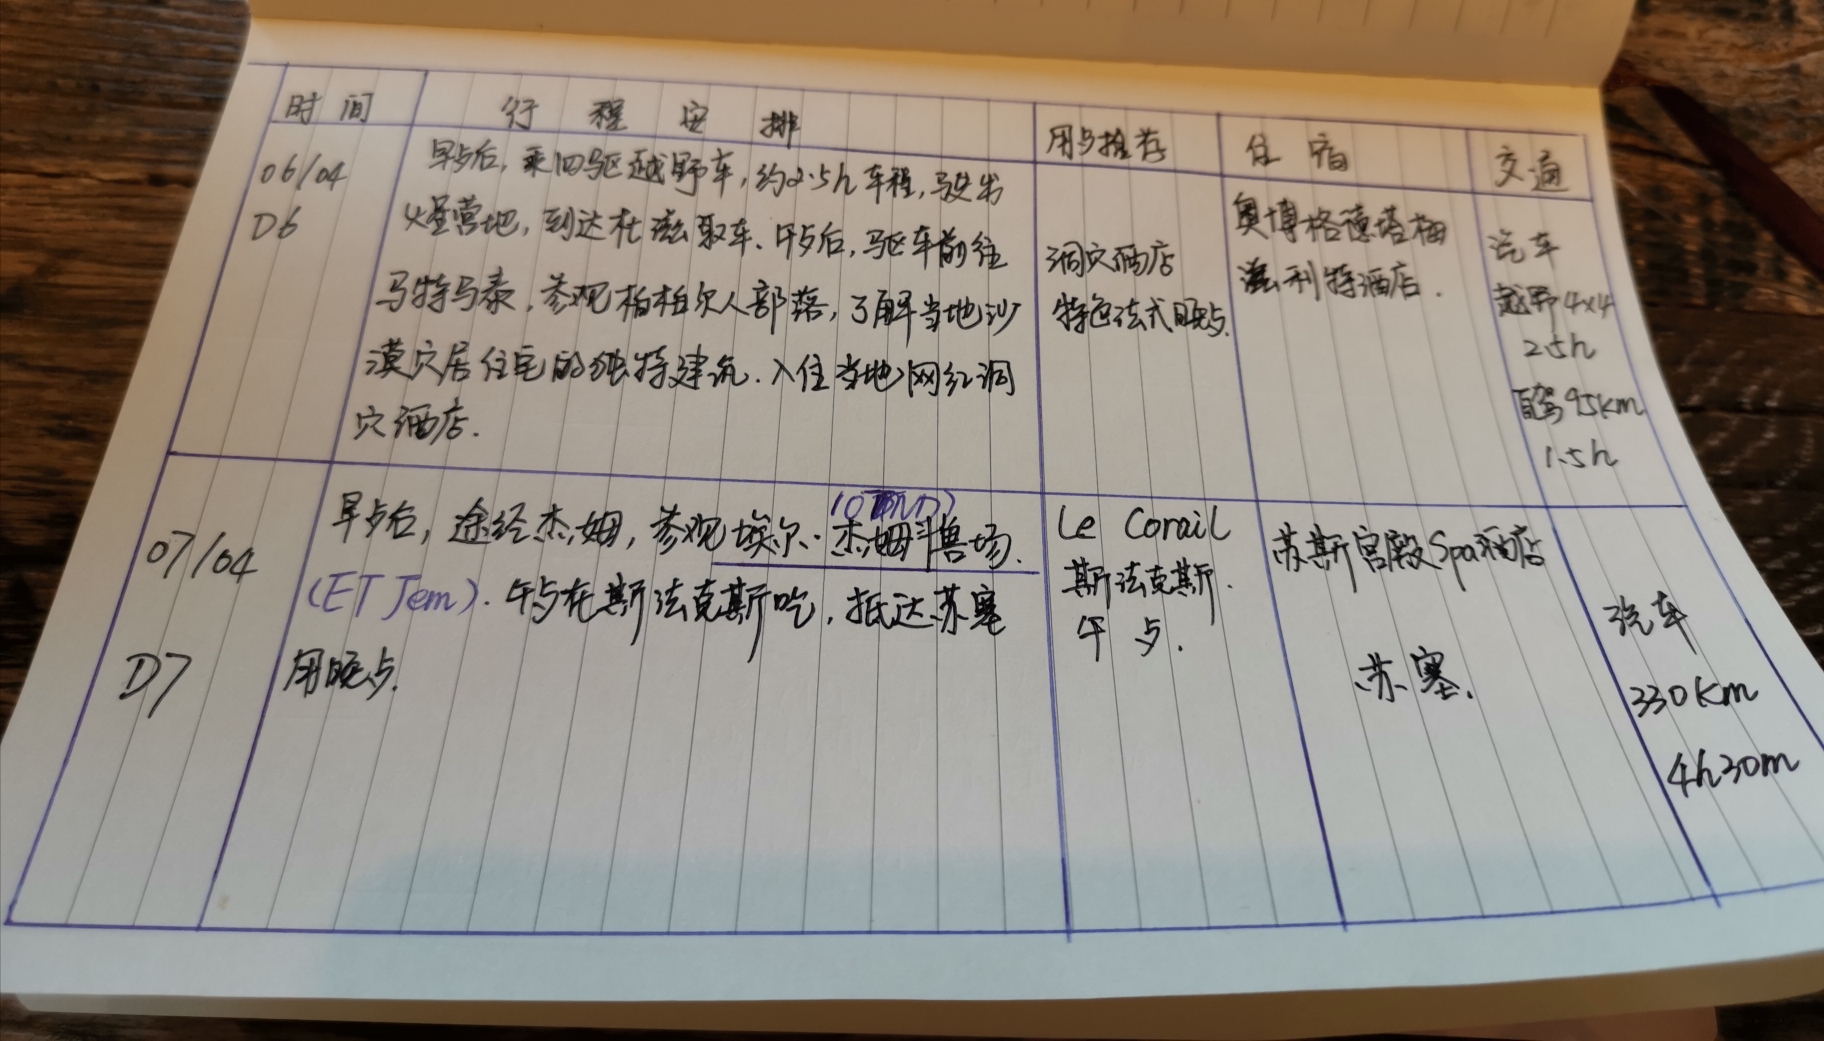 时间 行程安排 用歺推荐 住宿 交通
06/04
D6
早歺后，乘四驱越野车，约2.5h车程，驶出
火星营地，到达杜滋取车、午歺后，驱车前往
马特马泰，参观柏柏尔人部落，了解当地沙
漠穴居住宅的独特建筑．入住当地网红洞
穴酒店．
洞穴酒店
特色法式晚歺.
奥博格德塔梅
滋利特酒店．
汽车
越野4x4
2.5h
自驾95km
1.5h
07/04
D7
早歺后，途经杰姆，参观埃尔·杰姆斗兽场．
(ET Jem)．午歺在斯法克斯吃，抵达苏塞
用晚歺.
Le Corail
斯法克斯．
午歺．
苏斯宫殿Spa酒店
苏塞．
汽车
330km
4h30m